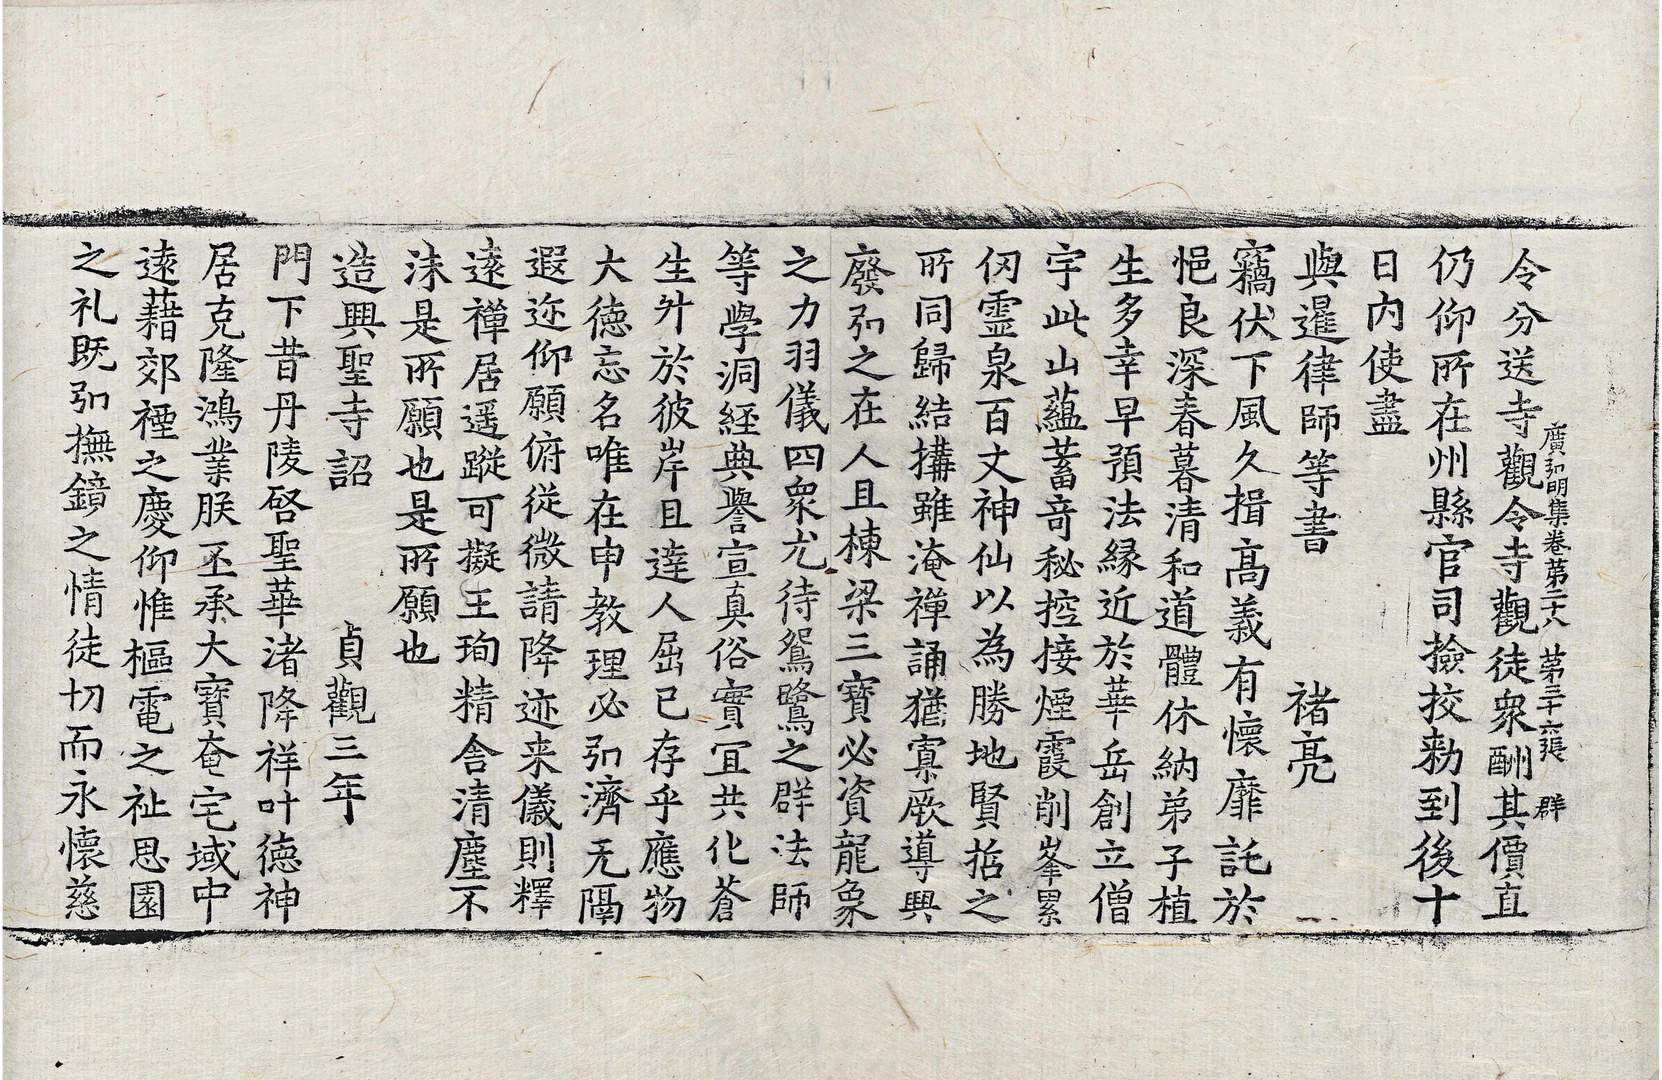 令分送寺觀令寺觀徒衆酬其價直
廣弘明集卷第二十八　第三十六張　群
仍仰所在州縣官司撿挍勑到後十
日内使盡
與暹律師等書　　褚亮
竊伏下風久揖髙義有懷靡託於
悒良深春暮清和道體休納弟子植
生多幸早預法緣近於華岳創立僧
宇此山蘊蓄竒秘控接煙霞削峯累
仞靈泉百丈神仙以為勝地賢括之
所同歸結搆雖淹禪誦猶寡厥導興
廢弘之在人且棟梁三寶必資龍象
之力羽儀四衆尤待鴛鷺之群法師
等學洞經典譽宣真俗實冝共化蒼
生升於彼岸且達人屈已存乎應物
大德忘名唯在申教理必弘濟无隔
遐迩仰願俯從微請降迹来儀則釋
遠禪居遥蹤可擬王珣精舎清塵不
沬是所願也是所願也
造興聖寺詔　　貞觀三年
門下昔丹陵啓聖華渚降祥叶德神
居克隆鴻業朕丕承大寶奄宅域中
遠藉郊禋之慶仰惟樞電之祉思園
之礼既弘撫鏡之情徒切而永懷慈